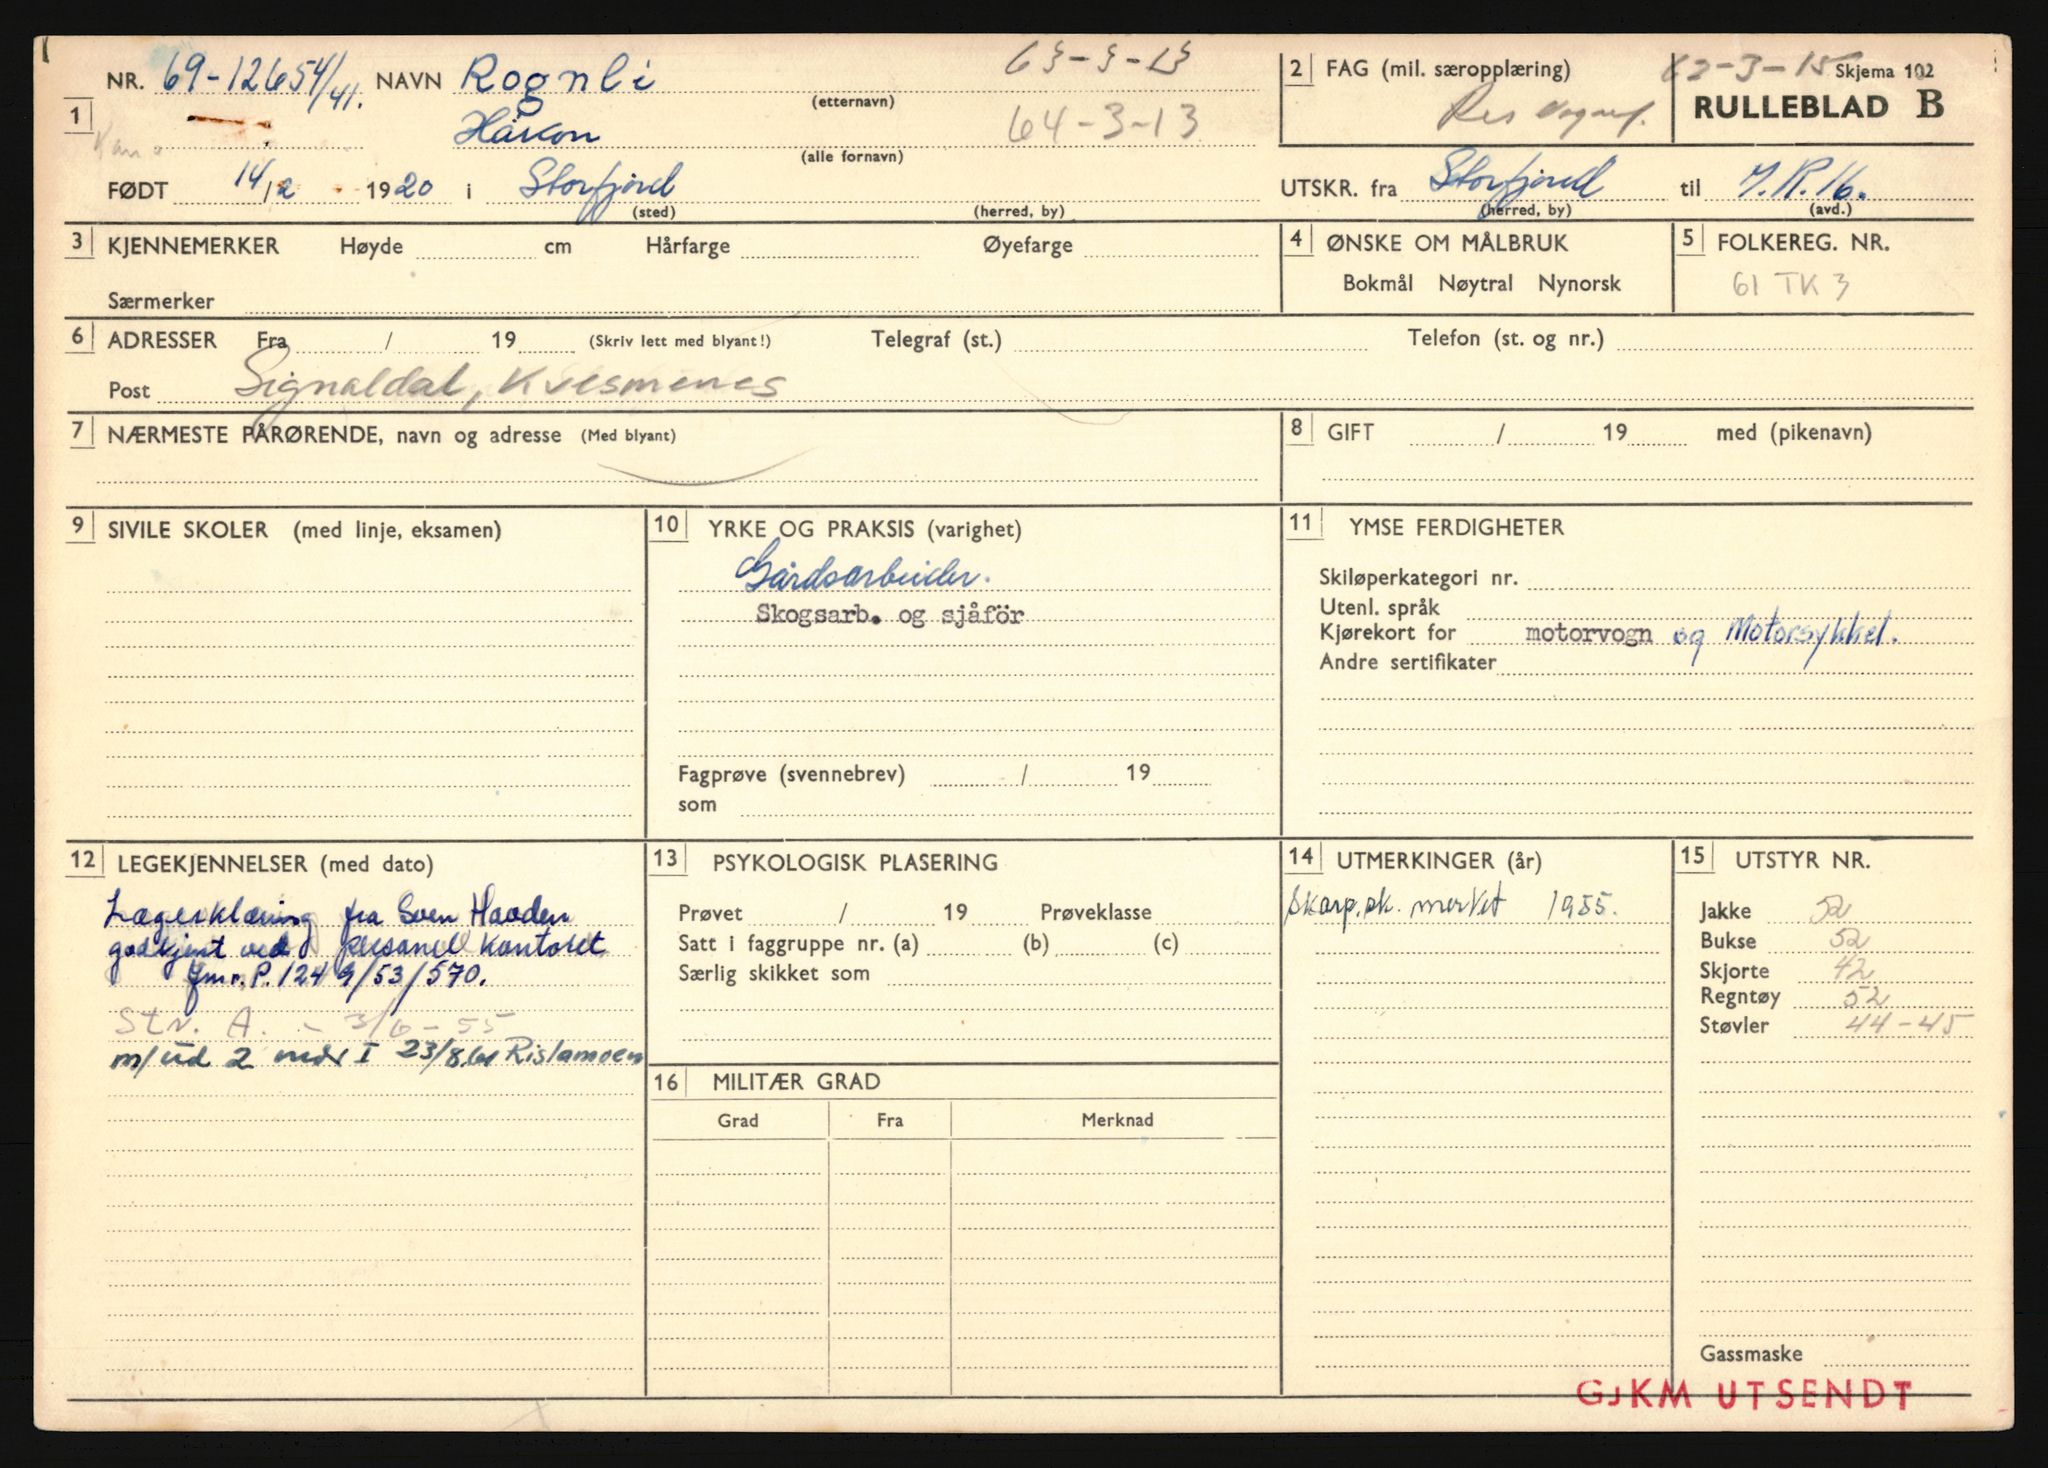 NR. 69-12654/41. NAVN Rognli (etternavn) 63-3-13
1 Håkon (alle fornavn) 64-3-13
FØDT 14/2 1920 i Storfjord (sted) (herred, by)
2 FAG (mil. særopplæring) 62-3-15 Skjema 102
Res
RULLEBLAD B
UTSKR. fra Storfjord (herred, by) til I.R.16. (avd.)
3 KJENNEMERKER Høyde cm Hårfarge Øyefarge
Særmerker
4 ØNSKE OM MÅLBRUK
Bokmål Nøytral Nynorsk
5 FOLKEREG. NR.
61 TK 3
6 ADRESSER Fra / 19 (Skriv lett med blyant!) Telegraf (st.) Telefon (st. og nr.)
Post Signaldal, Kvesmenes
7 NÆRMESTE PÅRØRENDE, navn og adresse (Med blyant)
8 GIFT / 19 med (pikenavn)
9 SIVILE SKOLER (med linje, eksamen)
10 YRKE OG PRAKSIS (varighet)
Gårdsarbeider.
Skogsarb. og sjåför
Fagprøve (svennebrev) / 19
som
11 YMSE FERDIGHETER
Skiløperkategori nr.
Utenl. språk
Kjørekort for motorvogn og Motorsykkel.
Andre sertifikater
12 LEGEKJENNELSER (med dato)
Lægerklæring fra Sven Haaden
godkjent ved personell kontoret
Jmr. P. 124 9/53/570.
Str. A. - 3/6-55
m/ud 2 mdr I 23/8.61 Rislamoen
13 PSYKOLOGISK PLASERING
Prøvet / 19 Prøveklasse
Satt i faggruppe nr. (a) (b) (c)
Særlig skikket som
14 UTMERKINGER (år)
Skarp.sk. merket 1955.
15 UTSTYR NR.
Jakke 52
Bukse 52
Skjorte 42
Regntøy 52
Støvler 44-45
Gassmaske
16 MILITÆR GRAD
Grad Fra Merknad
GJKM UTSENDT